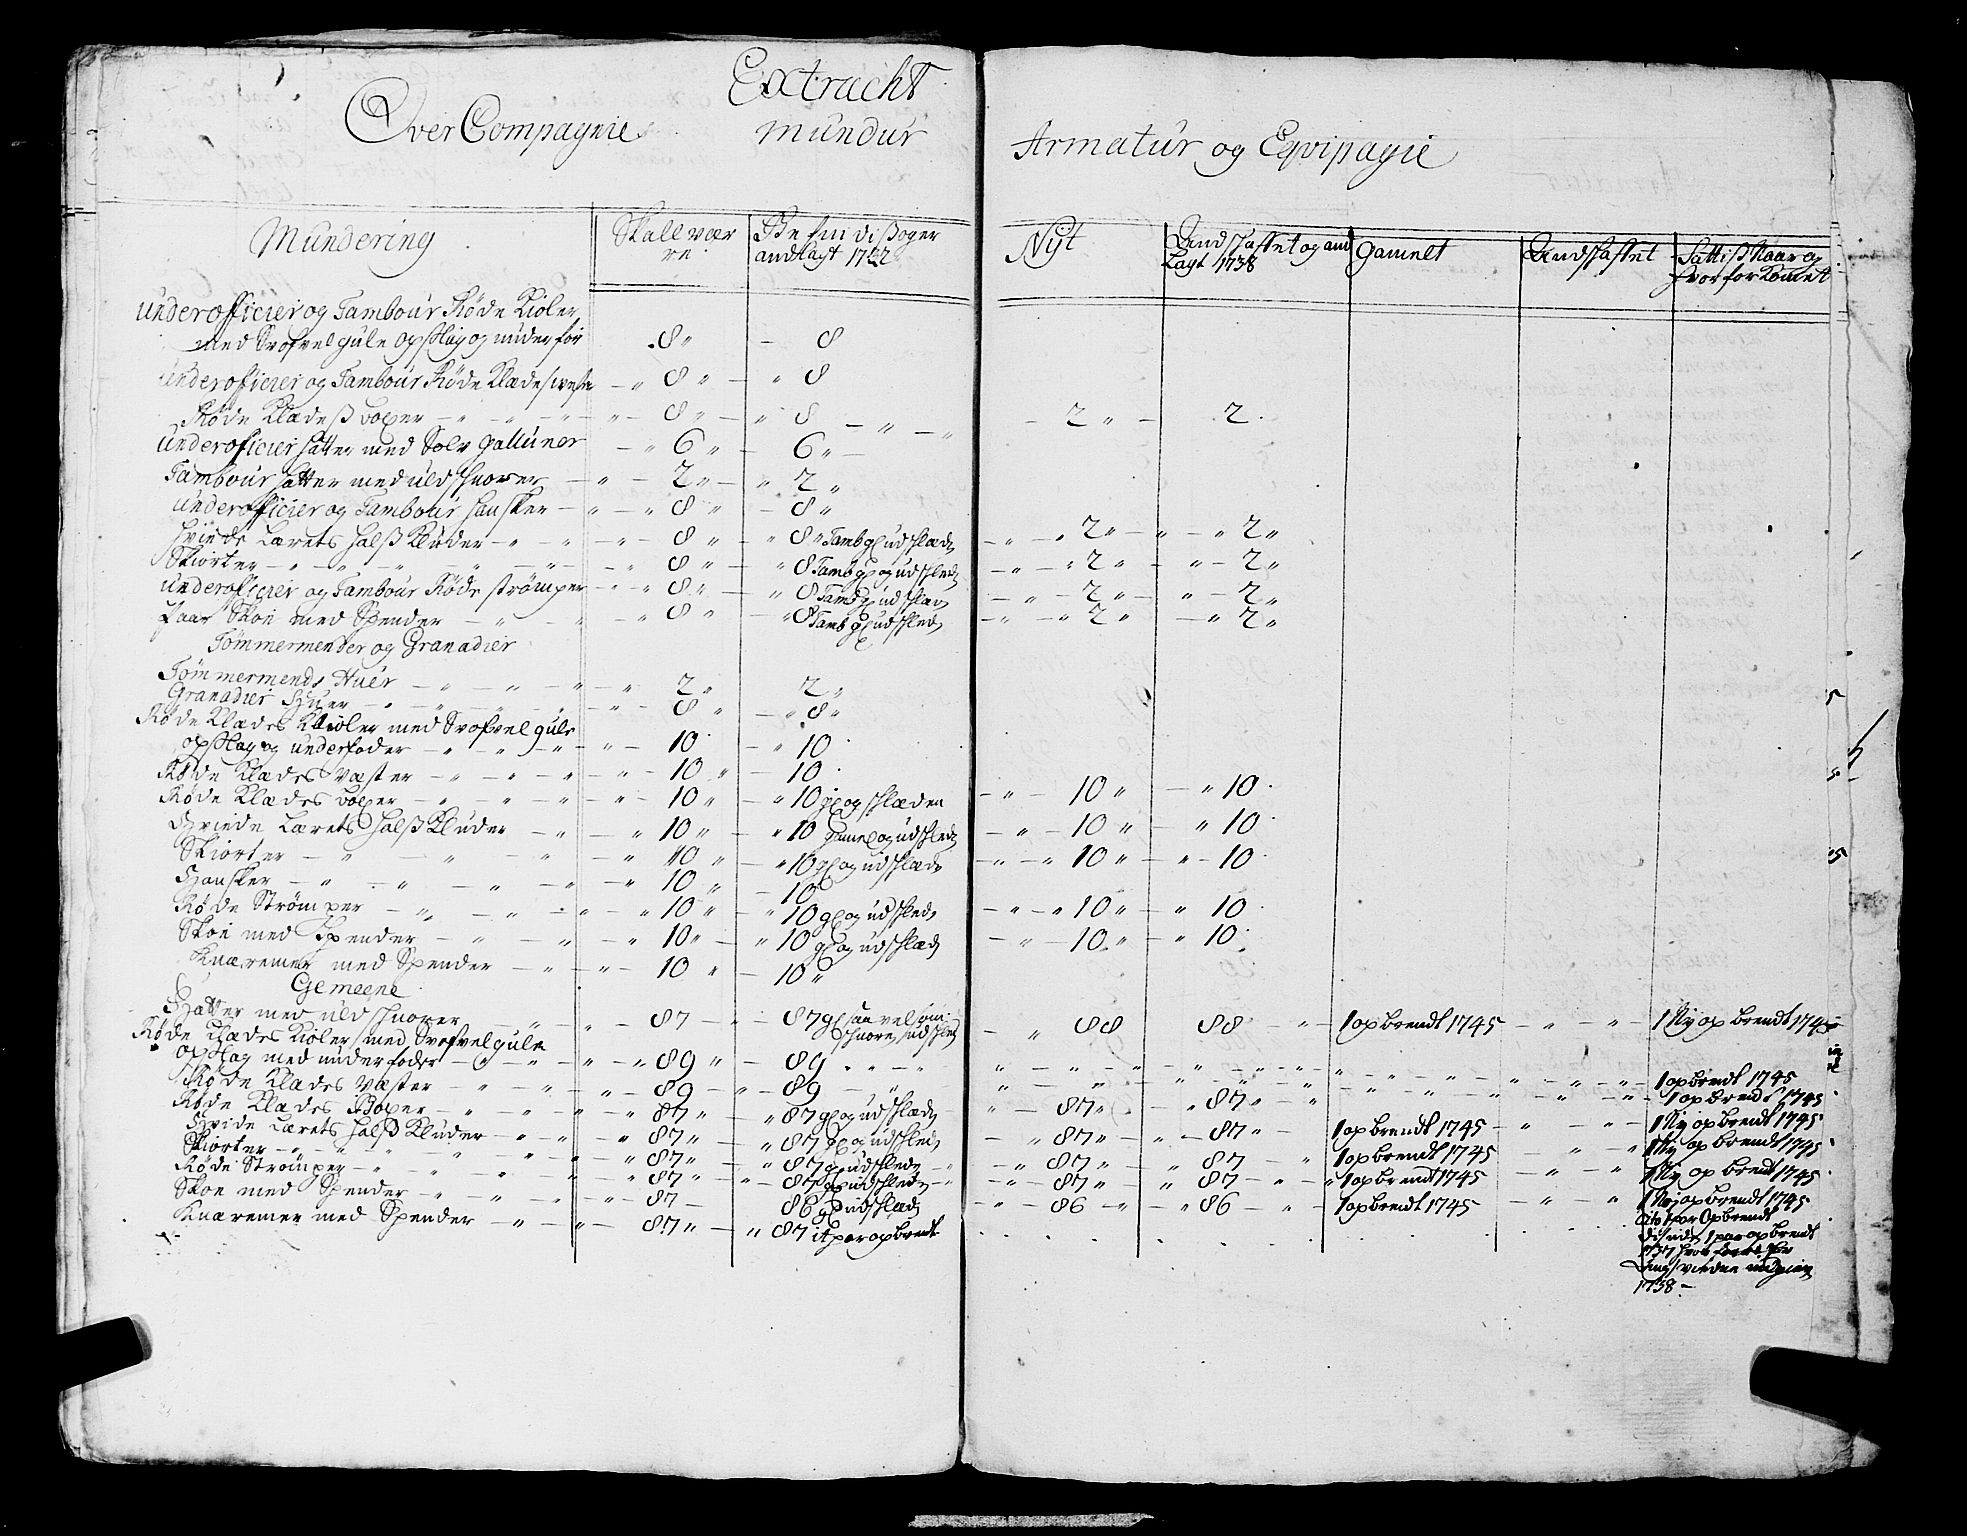 Extracht
Over Compagnies mundur Armatur og Eqvipagie
Mundering
Skall vær
re
Befindis og er
andlagt 1732
Nyt
Andskaffet og and
lagt 1738
gamelt
Andskaffet
Fattis Naar og
hvor forkomet
underofficier og Tambour Røde Kioler
med Svofvel gule opslag og underfor 8 " — 8
underoficier og Tambour Røde Klædes veste — " 8 " — " 8
Røde Klædeß boxer — " — " — " — 8 " — " 8 — " — " — 2 " — 2
underoficier hatter med Solv galluner — " 6 " — 6 " —
Tambour hatter med uld Snorer — " — 2 " — " 2 "
underofficier og Tambour hansker — " — " 8 " — 8 "
hviede Lærets halß Kluder — " — " — 8 " — " 8 " Tamb gl udslæd — " — " 2 " — " — " 2 "
Skiorter — " — " — " — 8 " — " 8 Tamb gl og udsled — " — " 2 " — " — 2 "
underoficier og Tambour Røde strømper — " — " 8 " — " 8 Tamb gl udslæd — " — 2 " — " — 2 "
Paar Skoe med Spender — " — " — " 8 " — " 8 Tamb gl udsled — " — " 2 " — " 2 "
Tømmermender og Granadier
Tømmermends Huer — " — " — " — " 2 " 2 "
Granadier Huer — " — " — " — " 8 " — " 8 "
Røde Klædes Kioler med Svofvel gule
opslag og underfoder — " — " — " — " — 10 — " 10
Røde Klædes Væster — " — " — " — " — 10 " — 10
Røde Klædes boxer — " — " — " — " — 10 " — " 10 gl og slæden — " — 10 " — " 10
Hviede Lærets halß Kluder — " — " 10 " — " 10 gamel og udsled — " — 10 " — " 10
Skiorter — " — " — " — " 10 " — " 10 gl og udslæde — " — " 10 " — " — 10
Hansker — " — " — " — " — " 10 " — 10
Røde Strømper — " — " — " — " 10 " — " 10 gl og udsled — " — " 10 " — " 10
Skoe med Spender — " — " — " 10 " — " 10 gl og udslæd — " — 10 " — " 10
Knæremer med Spender — " — " — 10 " — 10 "
Gemeene
Hatter med uld snorer " — " — 87 — " — 87 gl saavel som
snore, udsled — " 88 88 — " — 1 opbrendt 1745 — " — " — 1 Ny opbrendt 1745
Røde Klædes Kioler med Svofvel gule
opslag med underfoder — " — " — " 89 " — 89 " — " 1 opbrendt 1745
Røde Klædes Væster — " — " — " — 89 — " — 89 — " 1 opbrendt 1745
Røde Klædes Boxer — " — " — " 87 " — " 87 gl og udslæd " — 87 " — " 87 " — " 1 Ny opbrendt 1745
Hvide Lærets halß Kluder — " — " — " 87 " — " 87 gl og udsled — " 87 " — " — 87 " — 1 opbrendt 1745 — " — " 1 Ny opbrendt 1745
Skiorter — " — " — " — " 87 " — " 87 gl udslede — " — " 87 " — " 87 — " 1 opbrendt 1745 — " — " 1 Ny opbrendt 1745
Røde Strømper — " — " — " — " 87 " — " 87 gl udsleden — " — " 87 " — " 87 — " — " 1 opbrendt 1745 — " — " 1 Ny opbrendt 1745
Skoe med Spender — " — " — " — 87 — 86 gl udslæd " — 86 — " — " 86 — " — 1 opbrendt 1745 — " — "
Knæremer med Spender — " — " — 87 " — " 87 it par opbrendt
1 par Opbrendt
1 par opbrendt
1737 hvor
1738 —